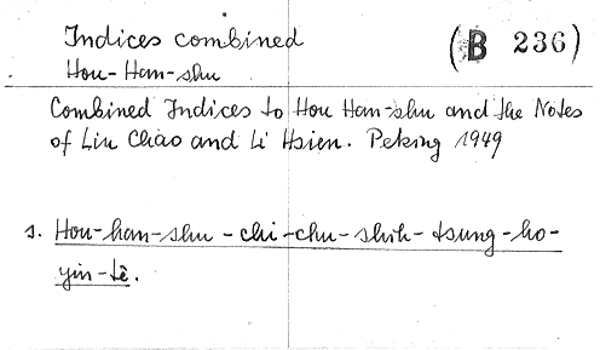 Indices combined
(B 236)
Hou-Han-shu
Combined Indices to Hou Han-shu and the Notes
of Liu Chao and Li Hsien. Peking 1949
s. Hou-han-shu-chi-chu-shih-tsung-ho-
yin-tê.